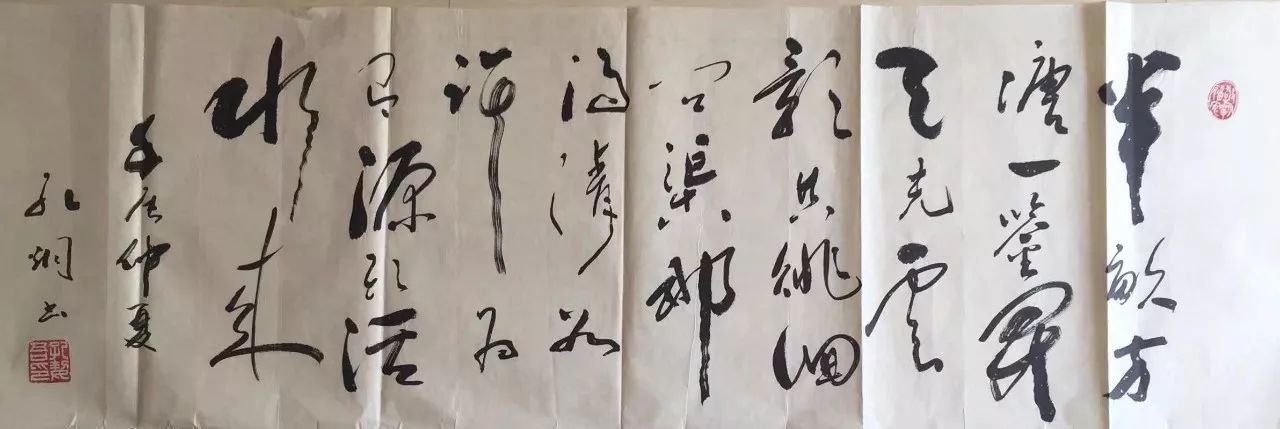 半畝方
塘一鑒開
天光雲
影共徘徊
问渠那
得清如
許为
有源头活
水来
壬辰仲夏
孔书